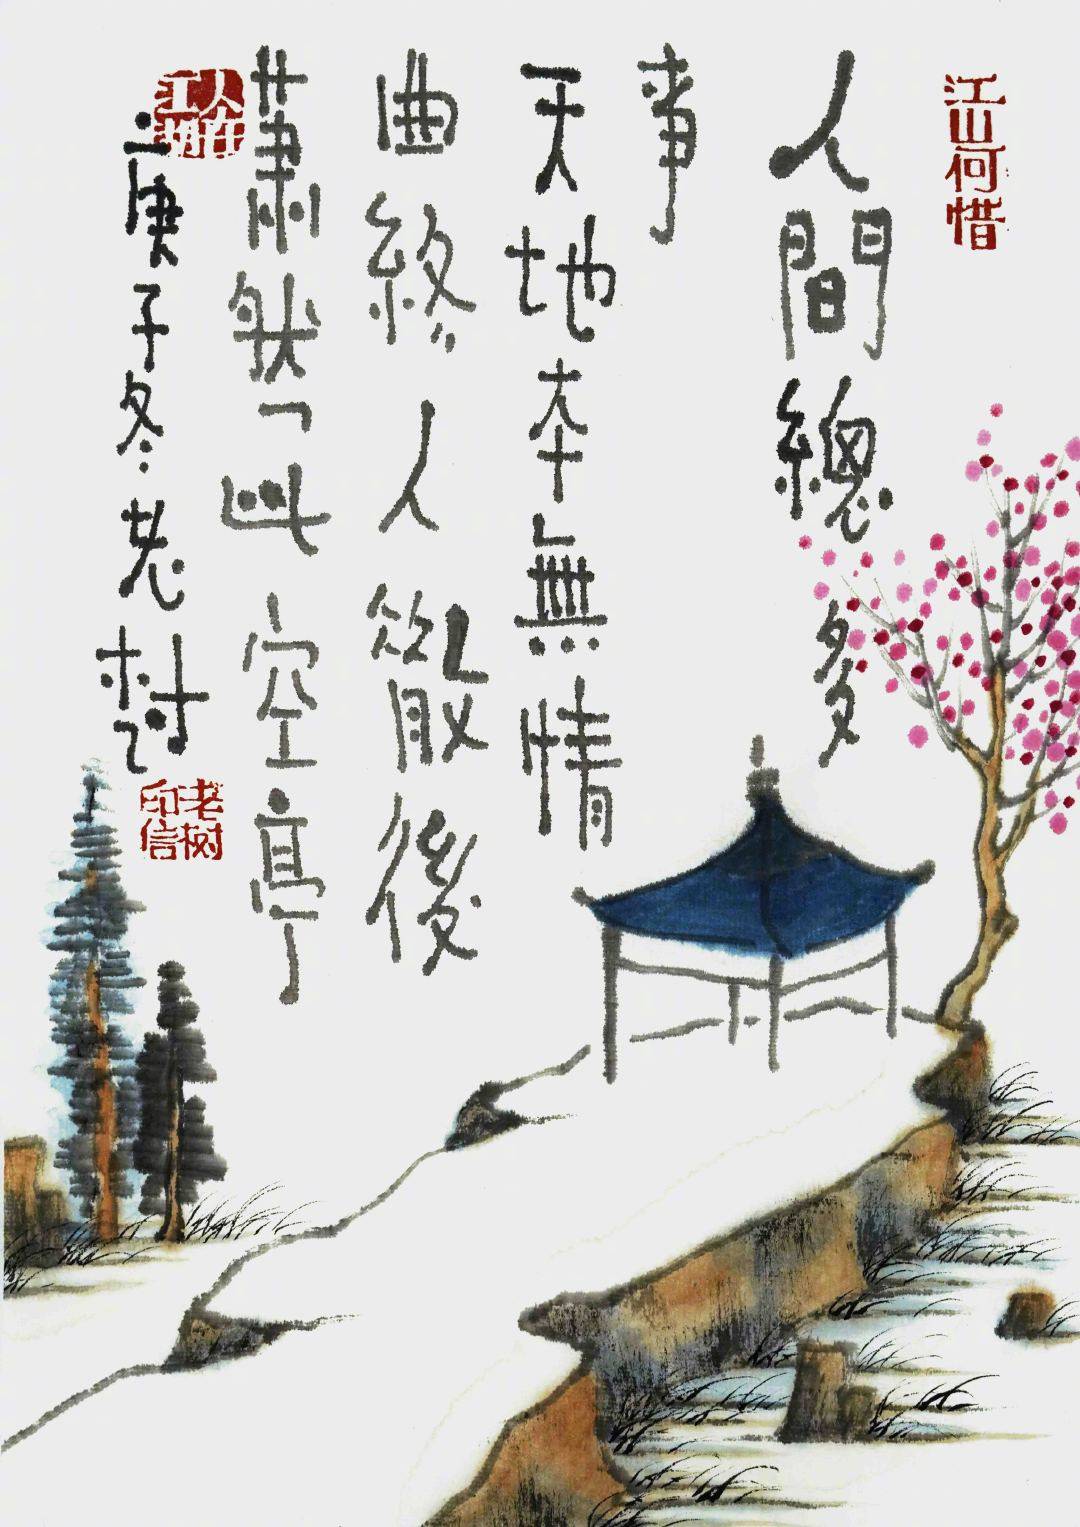 江山何惜
人間總多
事
天地本無情
曲終人散後
蕭然此空亭
人在江湖
庚子冬老樹
老树印信